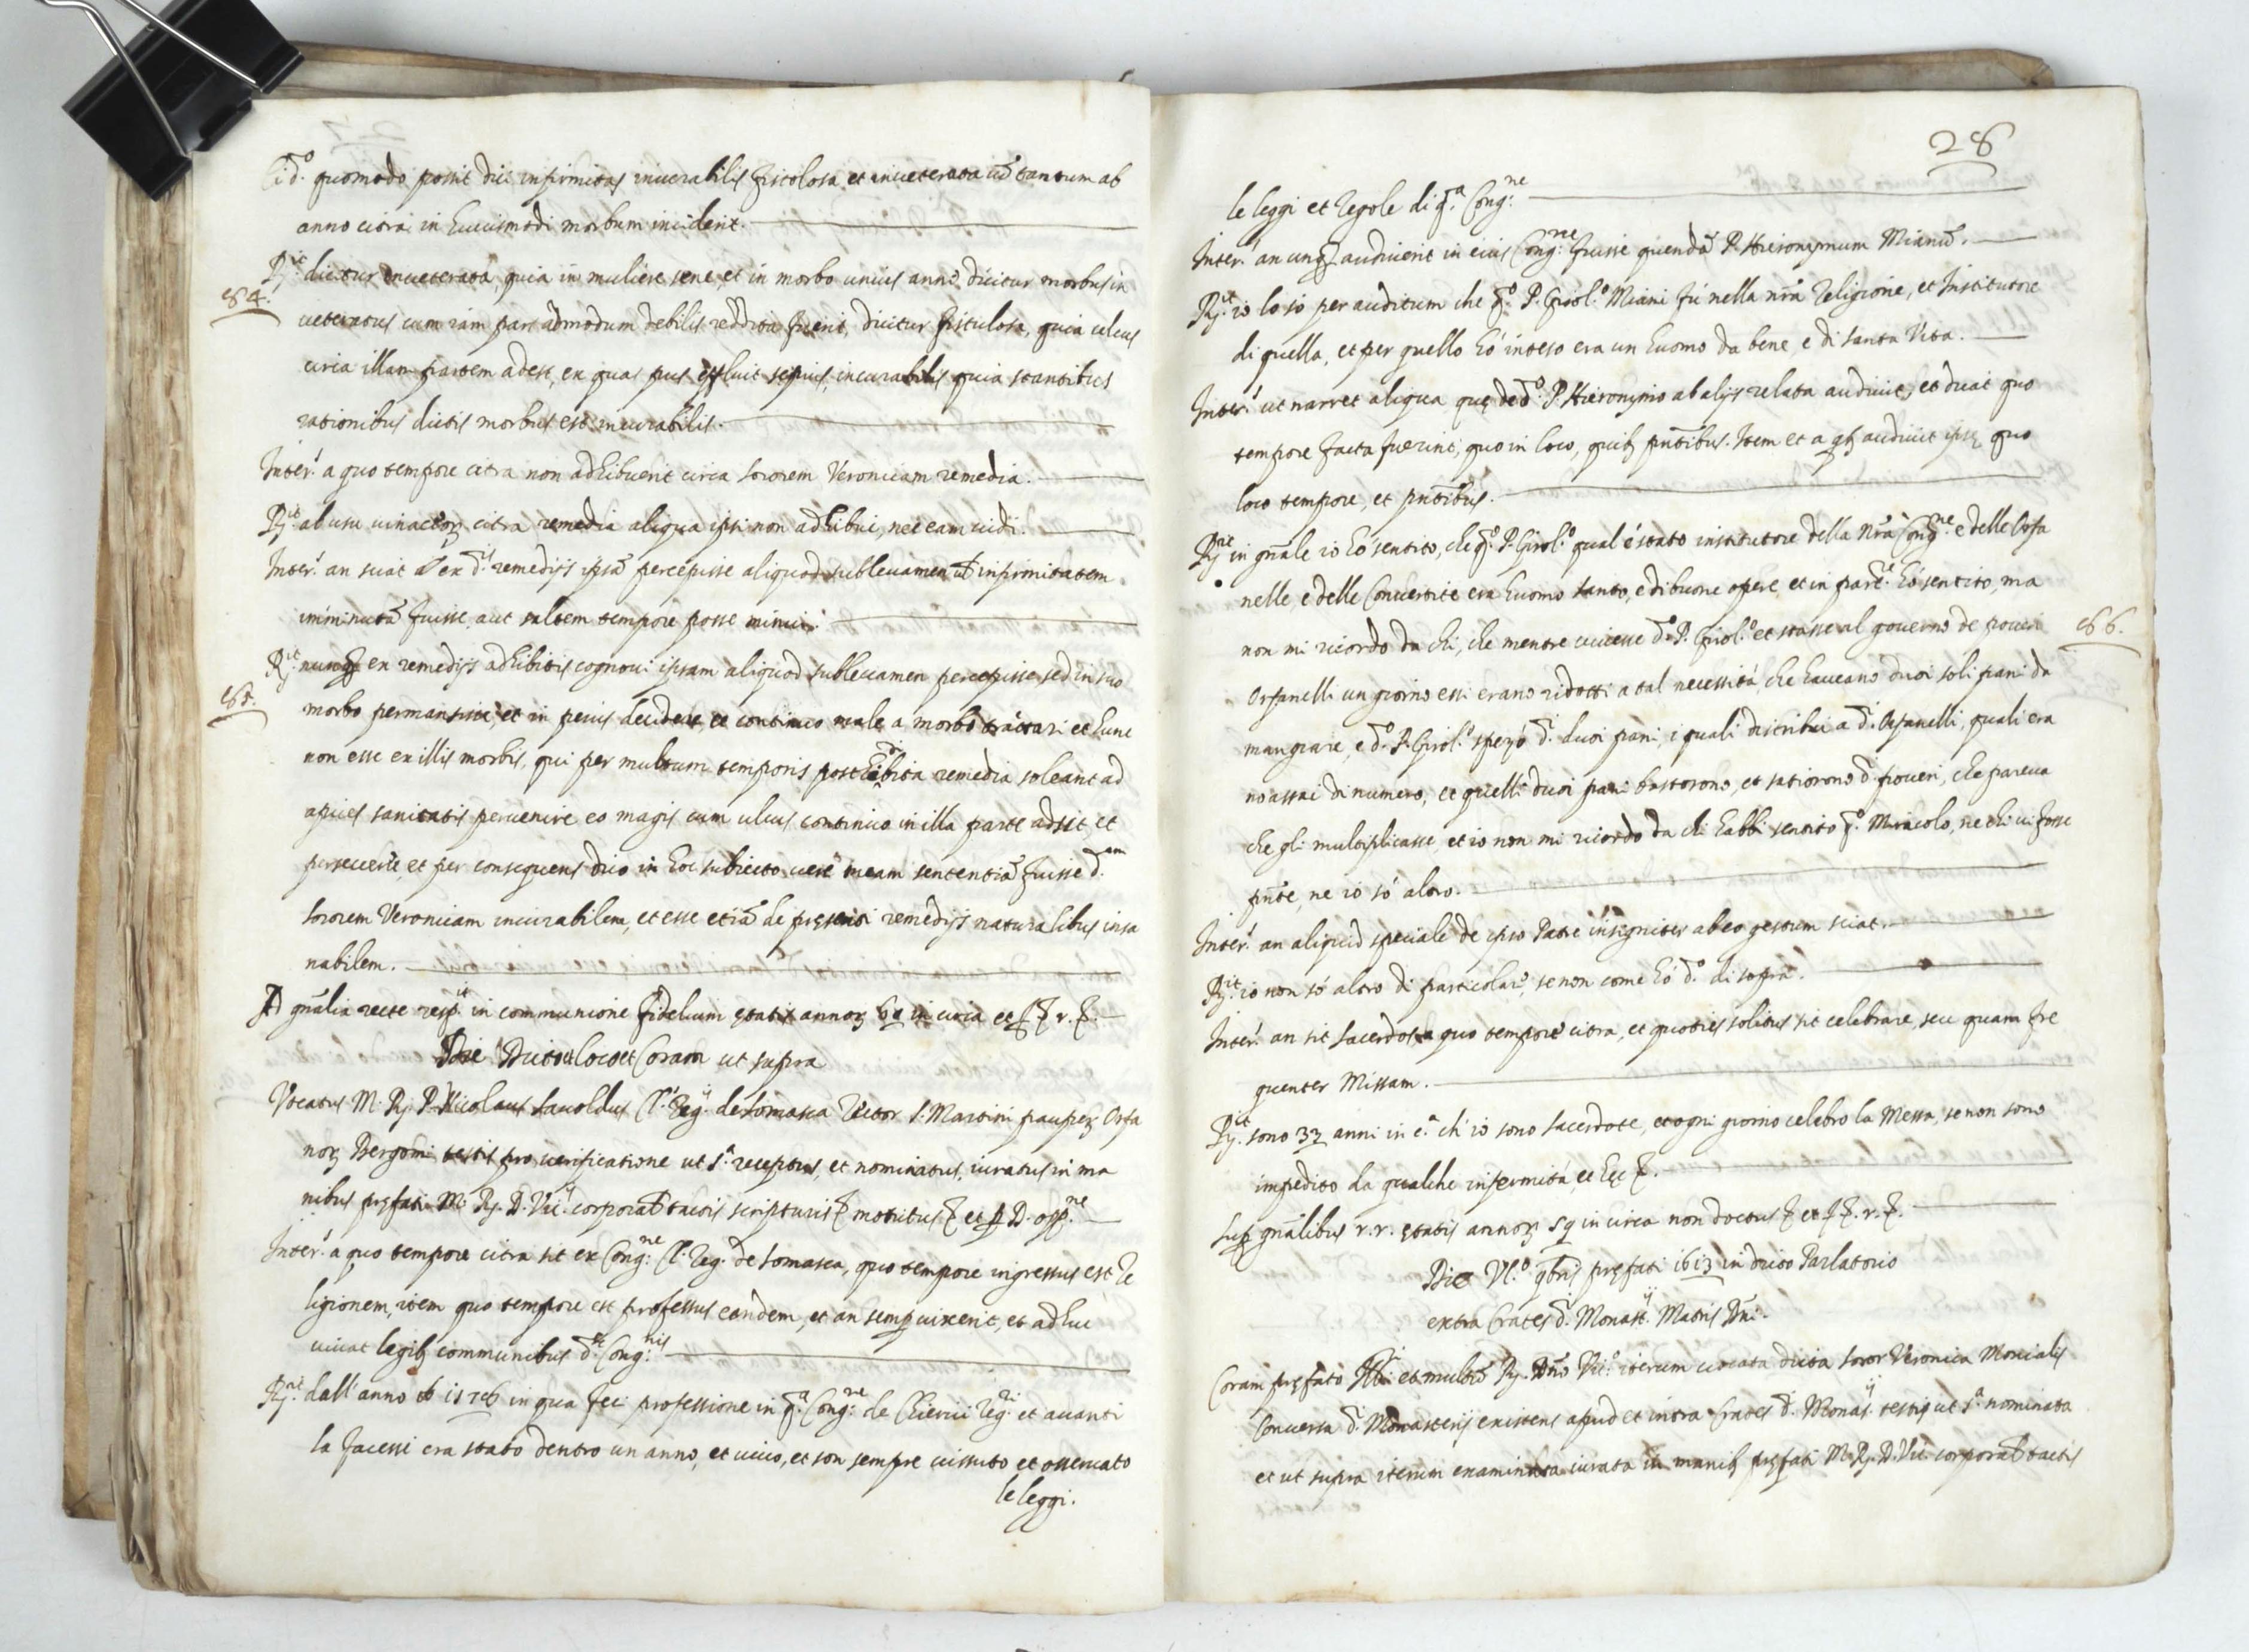 Ei d.º quomodo possit dici infirmitas incurabilis fistolosa et inueterata cũ tantum ab
anno citra in huiusmodi morbum inciderit.
R.it dicitur inueterata, quia in muliere sene, et in morbo unius anni dicitur morbus in
84.
ueteratus cum iam pars admodum debilis reddita fuerit, dicitur fistulosa, quia ulcus
circa illam partem adest, ex qua pus effluit sepius, incurabilis quia stantibus
rationibus dictis morbus est incurabilis.
Inter.' a quo tempore citra non adhibuerit circa sororem Veronicam remedia.
R.it ab usu uinaceoꝝ citra remedia aliqua ipsi non adhibui, nec eam uidi.
Inter.' an sciat ex d.is remedijs ipsã percepisse aliquod subleuamen uł infirmitatem
imminutã fuisse, aut saltem tempore posse minui.
R.it nunqȝ ex remedijs adhibitis cognoui ipsam aliquod subleuamen percepisse, sed in suo
85.
morbo permansisse, et in peius decidere, et continuo male a morbo tractari et hunc
non esse ex illis morbis, qui per multum temporis post adhibita remedia soleant ad
apices sanitatis peruenire eo magis cum ulcus continuo in illa parte adsit et
perseueret, et per consequens dico in hoc subiecto uere meam sententiã fuisse d.am
sororem Veronicam incurabilem, et esse etiã de presenti remedijs naturalibus insa
nabilem.
Ad gnãlia recte resp.it in communione fidelium ętatis annoꝝ in circa et
Die Dicto loco et Coram ut supra
Vocatus M. R. P. Nicolaus Sauoldus Cl. Reg. de Somasca Rector S. Martini pauperꝝ Orfa
noꝝ Bergomi testis pro uerificatione ut s.ª receptus, et nominatus, iuratus in ma
nibus pręfati M. R. D. Vic.ij corporał tactis scripturis monitus et D. opp.ne
Inter.' a quo tempore citra sit ex Cong.ne Cl. Reg. de Somasca, quo tempore ingressus est Re
ligionem, item quo tempore est professus eandem, et an semp uixerit, et adhuc
uiuat legibȝ communibus d.ę Cong.nis
R.it dall'anno 1576 in qua feci professione in q.ª Cong.ne de Chierici Reg.ri et auanti
la facessi era stato dentro un anno, et uiuo, et son sempre uissuto et osseruato
le leggi.
28
le leggi et regole di q.ª Cong.ne
Inter.' an unqȝ audiuerit in eius Cong.ne fuisse quendã P. Hieronymum Mianũ.
R.it io lo sò per auditum che q.º P. Girol.º Miani fù nella nrã Religione, et Institutore
di quella, et per quello hò inteso era un huomo da bene, e di santa Vita.
Inter.' ut narret aliqua quę de d.º P. Hieronymo ab alijs relata audiuit, et dicat quo
tempore facta fuerint, quo in loco, quibȝ pñtibus. Item et a qbȝ audiuit ipse, quo
loco tempore, et pñtibus.
R.it in gñale io hò sentito, che q.º P. Girol.º qual è stato institutore della nrã Cong.ne e delle Orfa
nelle, e delle Conuertite era huomo santo, e di buone opere, et in part.re hò sentito, ma
non mi ricordo da chi, che mentre uiuesse d.º P. Girol.º et stasse al gouerno de poueri
86.
Orfanelli un giorno essi erano ridotti a tal necessità, che haueano duoi soli pani da
mangiare, e d.º P. Girol.º spezò d.i duoi pani, i quali distribuì a d.i Orfanelli, quali era
no assai di numero, et quelli duoi pani bastorono, et satiorono d.i poueri, che pareua
che gli multiplicasse, et io non mi ricordo da chi habbi sentito q.º Miracolo, ne chi ui fosse
pñte, ne io sò altro.
Inter.' an aliquid speciale de ipso Patre insigniter ab eo gestum sciat.
R.it io non sò altro di particolare, se non come hò d.º di sopra.
Inter.' an sit sacerdos, a quo tempore citra, et quoties solitus sit celebrare, seu quam fre
quenter Missam.
R.it sono 33 anni in c.ª ch'io sono sacerdote, et ogni giorno celebro la Messa, se non sono
impedito da qualche infermità, et hęc
Sup gnãlibus r. r. ętatis annoꝝ 59 in circa non doctus et
Die Vl.º qbris pręfati 1613 in dicto Parlatorio
extra Crates d.i Monast.ij Matris Dñi.
Coram pręfato Ill.i et multũ R. Dño Vic.º iterum uocata dicta soror Veronica Monialis
Conuersa d.i Monasterij existens apud et intra Crates d.i Monas.ij testis ut s.ª nominata
et ut supra iterum examinata iurata in manibȝ pręfati M. R. D. Vic. corporał tactis